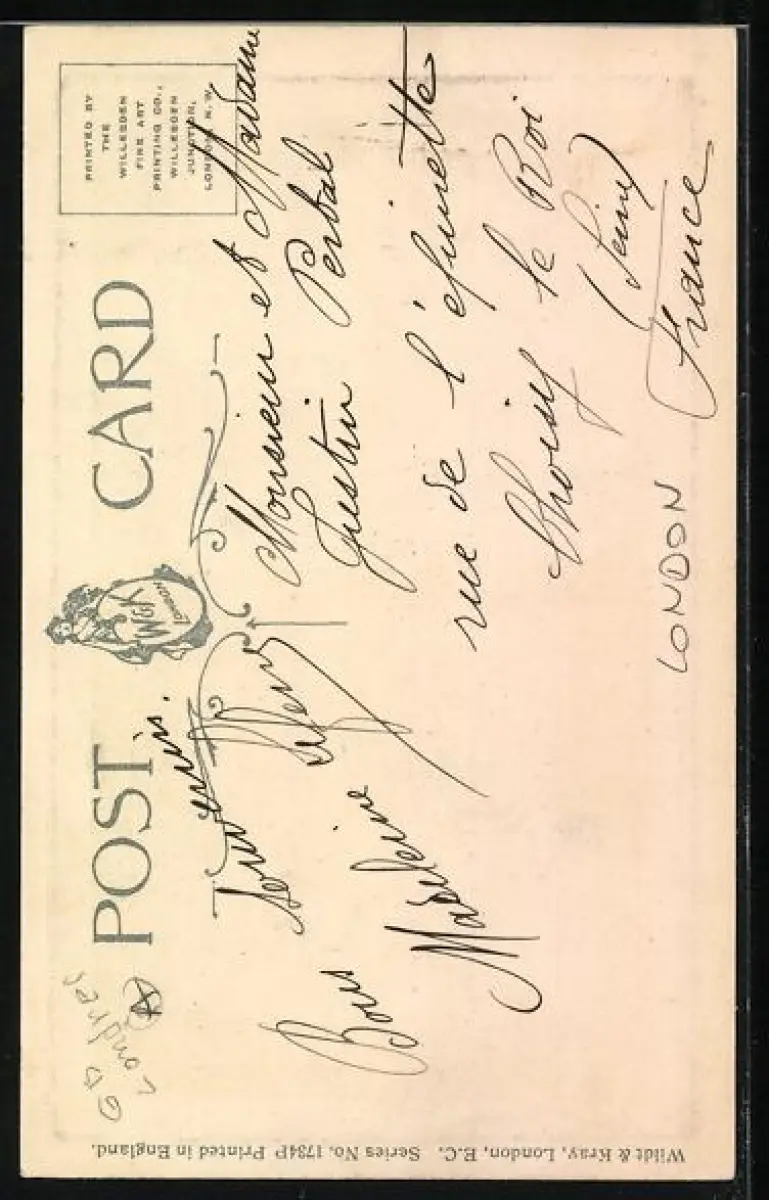 GB
Londres
A
POST CARD
W & K
LONDON
PRINTED BY
THE
WILLESDEN
FINE ART
PRINTING CO.,
WILLESDEN
JUNCTION,
LONDON, N.W.
Bons
Madeleine
Monsieur et Madame
Justin Perbal
rue de l'épinette
Choisy le Roi
(Seine)
France
LONDON
Wildt & Kray, London, E.C. Series No. 1734P Printed in England.